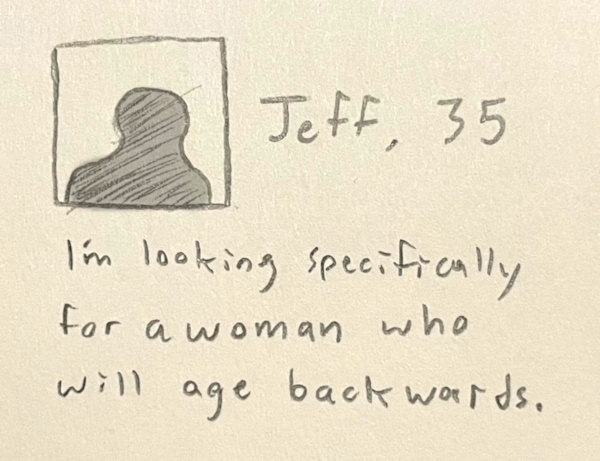 Jeff, 35
I'm looking specifically
for a woman who
will age backwards.